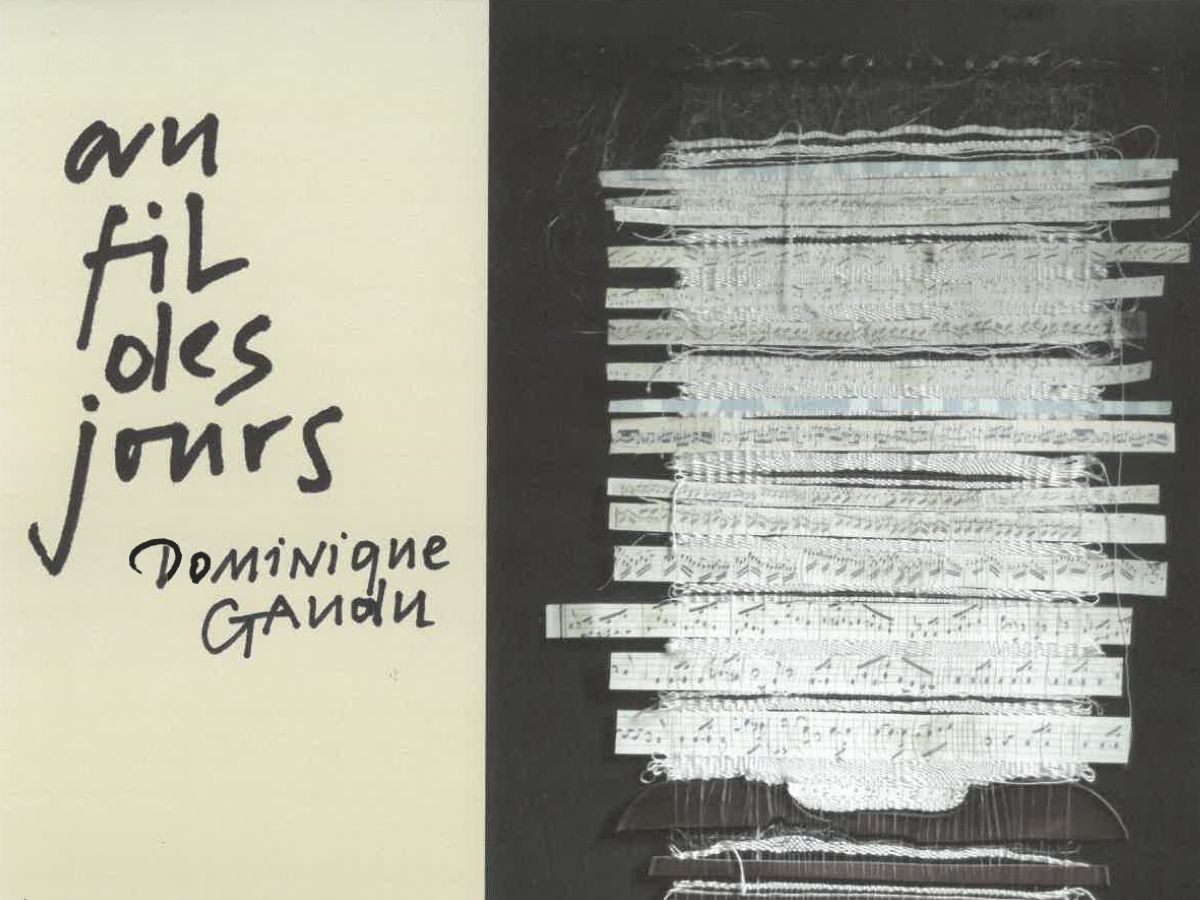 au
fil
des
jours
Dominique
Gaudu